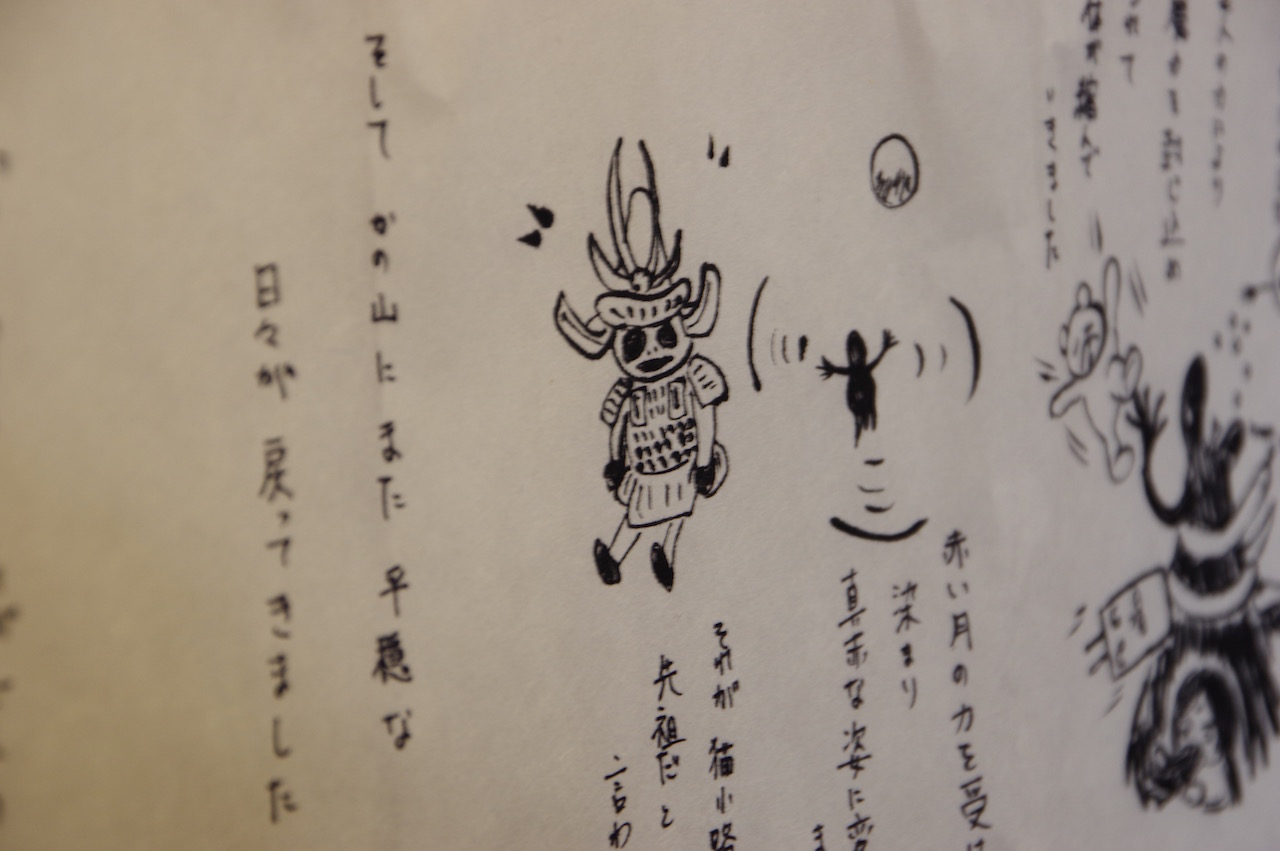 の力により
を封じ止め
れて
が縮んで
いきました
赤い月の力を受け
染まり
真赤な姿に変
ま
それが 猫小路
先祖だと
言わ
そして かの山にまた 平穏な
日々が 戻ってきました